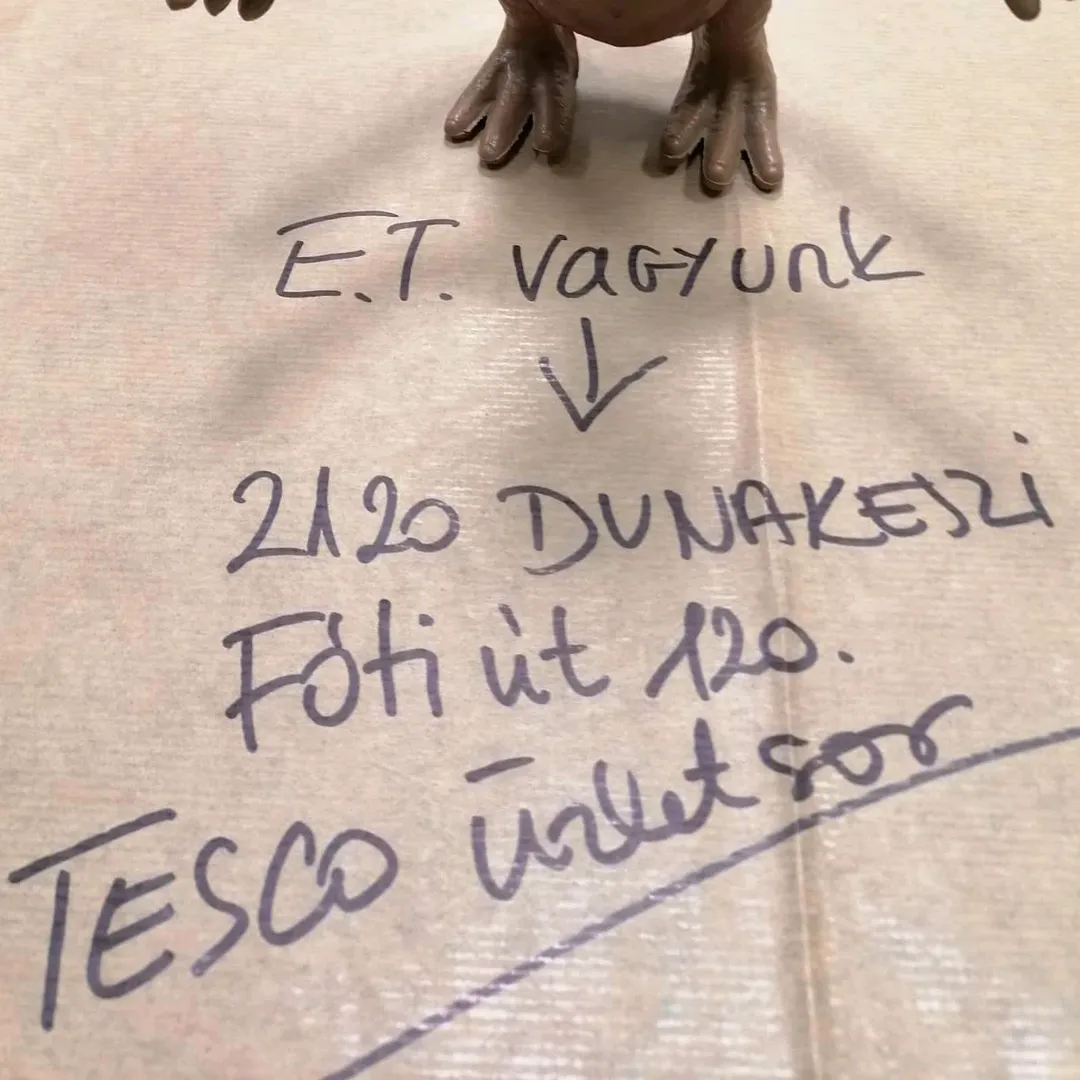 E.T. vagyunk
↓
2120 DUNAKESZI
Fóti út 120.
TESCO üzletsor